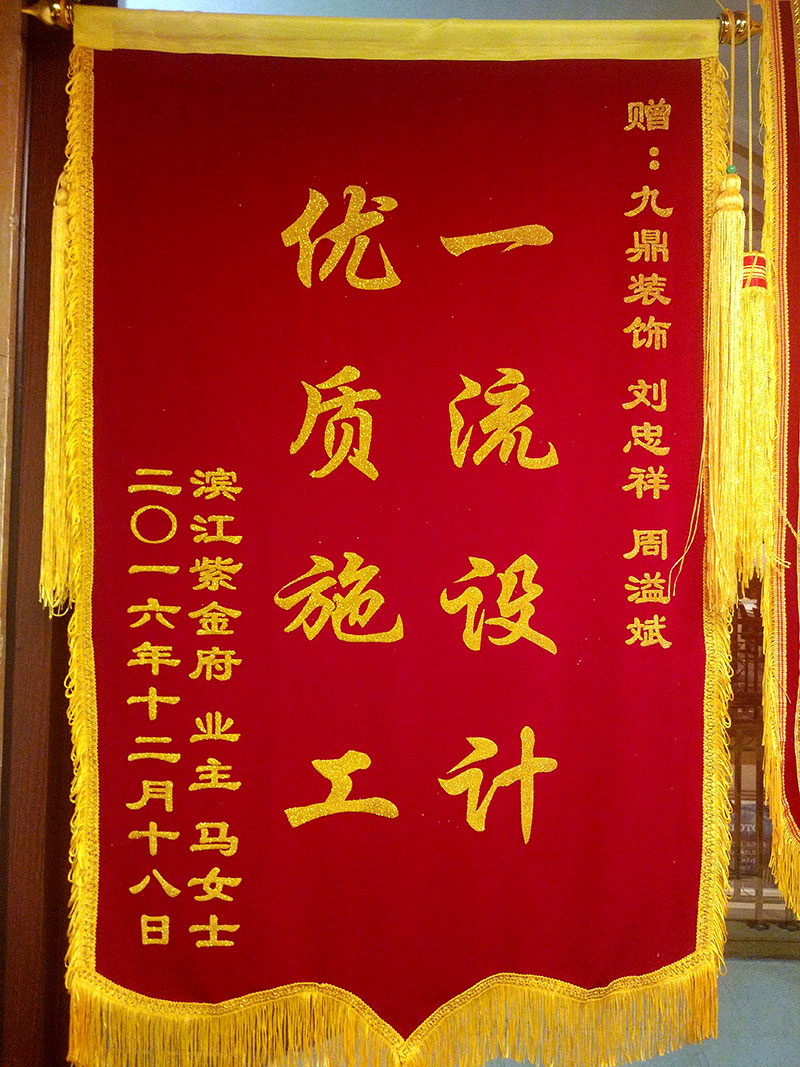 赠：九鼎装饰 刘忠祥 周溢斌
一流设计
优质施工
滨江紫金府 业主 马女士
二〇一六年十二月十八日